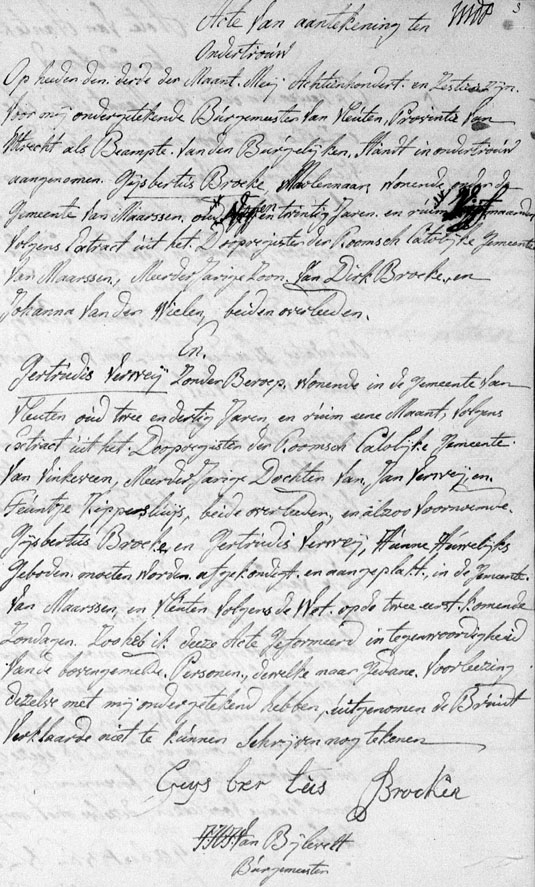 Acte van aantekening ten 3
Ondertrouw
Op heden den derde der Maant Meij Achtienhondert en Zestien zijn
voor mij ondergetekende Burgemeester van Vleuten, Provintie van
Utrecht als Beampte van den Burgelijken Standt in ondertrouw
aangenomen Gijsbertus Brocke, wonende onder de
Gemeente van Maarssen, oud en twintig Jaren en ruim maanden
volgens Extract uit het Doopregister der Roomsch Catolijke Gemeente
van Maarssen, Meerder Jarige Zoon van Dirk Brocke, en
Johanna van der Wielen, beiden overleeden.
En.
Gertrudis Verweij Zonder Beroep, wonende in de Gemeente van
Vleuten oud twee en dertig Jaren en ruim eene Maant, volgens
Extract uit het Doopregister der Roomsch Catolijke Gemeente
van Vinkeveen, Meerder Jarige Dochter van Jan Verweij, en
Kippersluijs, beide overleeden, en alzoo voornoemde
Gijsbertus Brocke, en Gertrudis Verweij, Hunne Huwelijks
Geboden moeten worden afgekondigt en aangeplakt, in de Gemeente
van Maarssen, en Vleuten volgens de Wet op de twee eerst komende
Zondagen. Zoo heb ik deeze Acte geformeerd in tegenwoordigheid
van de bovengemelde Personen, dewelke naar gedane voorleezing
dezelve met mij ondergetekend hebben, uitgenomen de Bruidt
verklaarde niet te kunnen Schrijven nog tekenen
Guys ber tus Brocken
van Bijlevelt
Burgemeester